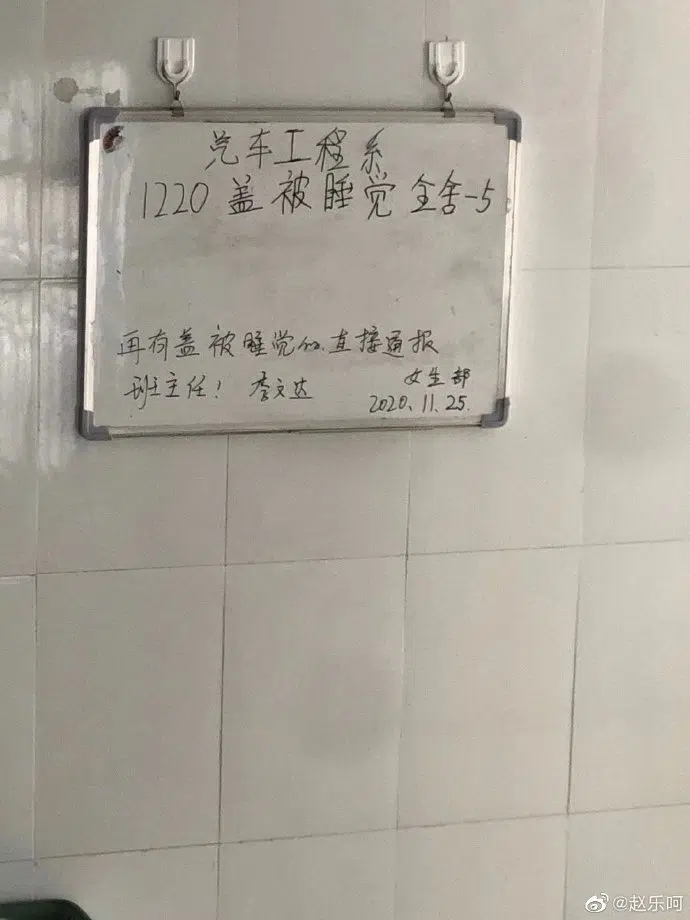 汽车工程系
1220 盖被睡觉 全舍-5
再有盖被睡觉的.直接通报
班主任! 李文达
女生部
2020.11.25.
@赵乐呵